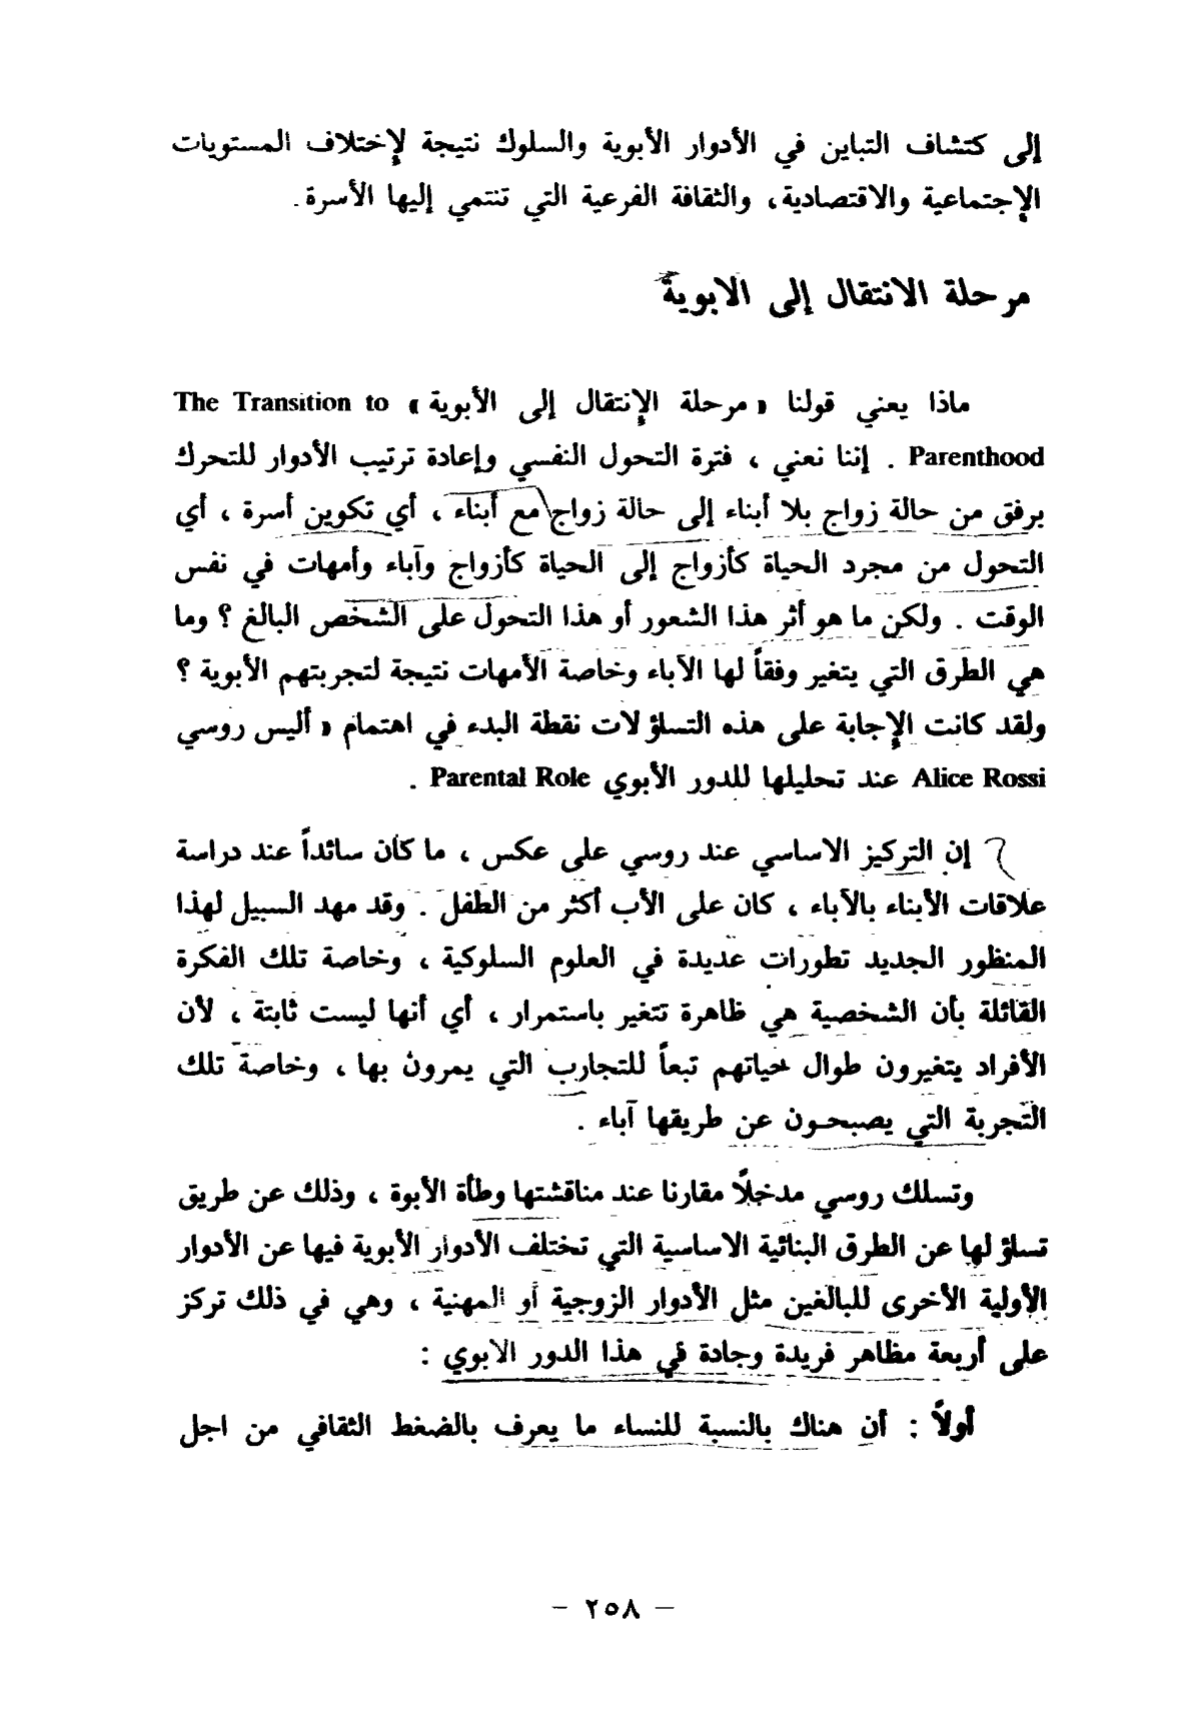 إلى كتشاف التباين في الأدوار الأبوية والسلوك نتيجة لإختلاف المستويات
الإجتماعية والاقتصادية، والثقافة الفرعية التي تنتمي إليها الأسرة.
مرحلة الانتقال إلى الابوية
ماذا يعني قولنا « مرحلة الإنتقال إلى الأبوية » The Transition to
Parenthood . إننا نعني ، فترة التحول النفسي وإعادة ترتيب الأدوار للتحرك
برفق من حالة زواج بلا أبناء إلى حالة زواج مع أبناء ، أي تكوين أسرة ، أي
التحول من مجرد الحياة كأزواج إلى الحياة كأزواج وآباء وأمهات في نفس
الوقت . ولكن ما هو أثر هذا الشعور أو هذا التحول على الشخص البالغ ؟ وما
هي الطرق التي يتغير وفقاً لها الآباء وخاصة الأمهات نتيجة لتجربتهم الأبوية ؟
ولقد كانت الإجابة على هذه التساؤلات نقطة البدء في اهتمام « أليس روسي
Alice Rossi عند تحليلها للدور الأبوي Parental Role .
إن التركيز الاساسي عند روسي على عكس ، ما كان سائداً عند دراسة
علاقات الأبناء بالآباء ، كان على الأب أكثر من الطفل . وقد مهد السبيل لهذا
المنظور الجديد تطورات عديدة في العلوم السلوكية ، وخاصة تلك الفكرة
القائلة بأن الشخصية هي ظاهرة تتغير باستمرار ، أي أنها ليست ثابتة ، لأن
الأفراد يتغيرون طوال حياتهم تبعاً للتجارب التي يمرون بها ، وخاصة تلك
التجربة التي يصبحون عن طريقها آباء .
وتسلك روسي مدخلاً مقارنا عند مناقشتها وطأة الأبوة ، وذلك عن طريق
تساؤلها عن الطرق البنائية الاساسية التي تختلف الأدوار الأبوية فيها عن الأدوار
الأولية الأخرى للبالغين مثل الأدوار الزوجية أو المهنية ، وهي في ذلك تركز
على أربعة مظاهر فريدة وجادة في هذا الدور الابوي :
أولاً : أن هناك بالنسبة للنساء ما يعرف بالضغط الثقافي من اجل
– ٢٥٨ –